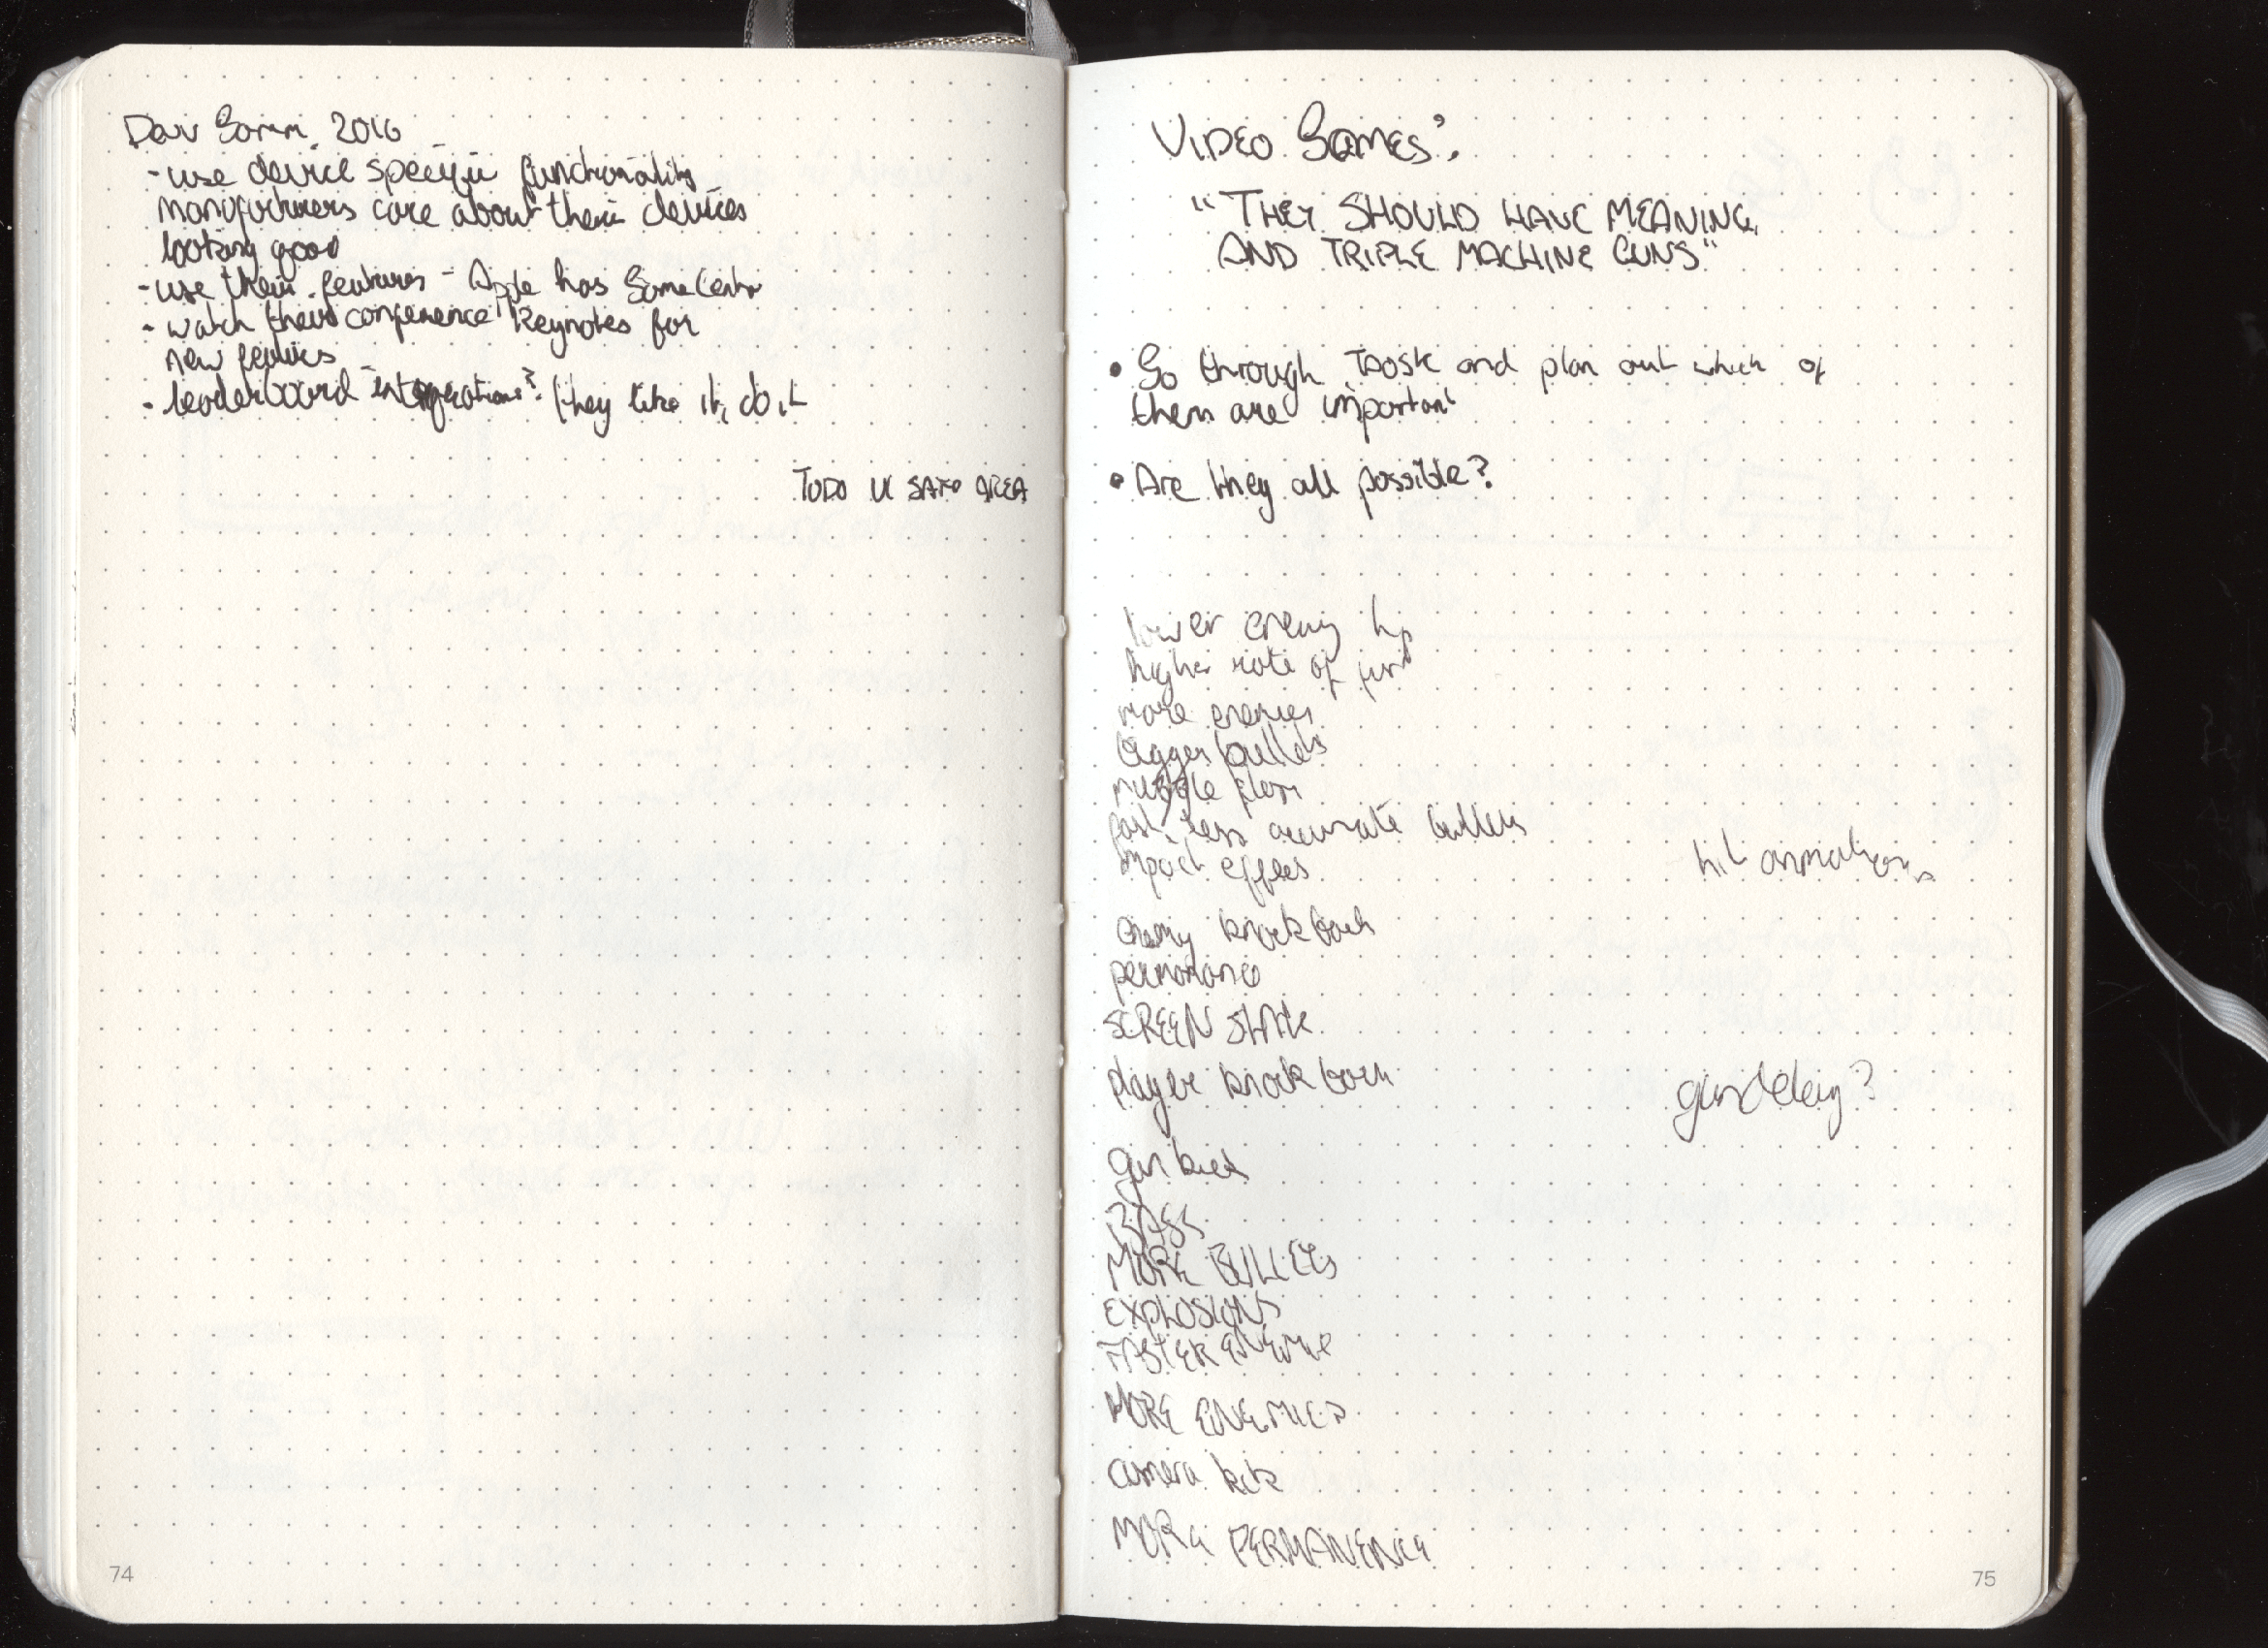 Dev Gamm 2016
- use device specific functionality
manufacturers care about their devices
looking good
- use their features - Apple has GameCenter
- watch their conference keynotes for
new features
- leaderboard integrations? they like it, do it
TODO UI SAFE AREA
74
VIDEO GAMES:
"THEY SHOULD HAVE MEANING
AND TRIPLE MACHINE GUNS"
• Go through and plan out which of
them are important
• Are they all possible?
lower enemy hp
higher rate of fire
more enemies
bigger bullets
muzzle flash
fast, less accurate bullets
impact effects
hit animations
enemy knockback
permanence
SCREEN SHAKE
player knockback
gun delay?
gun kick
BASS
MORE BULLETS
EXPLOSIONS
FASTER ENEMIE
MORE ENEMIES
camera kick
MORE PERMANENCE
75